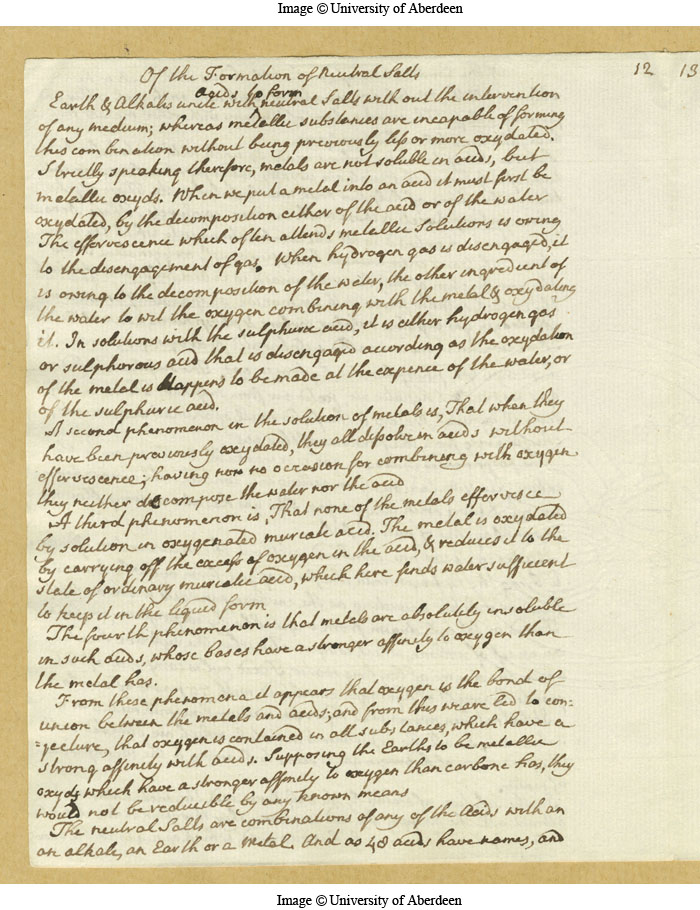 Image © University of Aberdeen
12 13
Of the Formation of Neutral Salts
acids to form
Earth & Alkalis unite with neutral Salts with out the intervention
of any medium; whereas metallic substances are incapable of forming
this combination without being previously less or more oxydated.
Strictly speaking therefore, metals are not soluble in acids, but
metallic oxyds. When we put a metal into an acid it must first be
oxydated, by the decomposition either of the acid or of the water
The effervescence which often attends metallic Solutions is owing
to the disengagement of gas. When hydrogen gas is disengaged, it
is owing to the decomposition of the water, the other ingredient of
the water to wit the oxygen combining with the metal & oxydating
it. In solutions with the sulphuric acid, it is either hydrogen gas
or sulphorous acid that is disengaged according as the oxydation
of the metal is happens to be made at the expence of the water, or
of the sulphuric acid.
A second phenomenon in the solution of metals is, That when they
have been previously oxydated, they all dissolve in acids without
effervescence; having now no occasion for combining with oxygen
they neither decompose the water nor the acid
A third phenomenon is, That none of the metals effervesce
by solution in oxygenated muriatic acid. The metal is oxydated
by carrying off the excess of oxygen in the acid, & reduces it to the
state of ordinary muriatic acid, which here finds water sufficient
to keep it in the liquid form.
The fourth phenomenon is that metals are absolutely insoluble
in such acids, whose bases have a stronger affinity to oxygen than
the metal has.
From these phenomena it appears that oxygen is the bond of
union between the metals and acids; and from this we are led to con=
=jecture, that oxygen is contained in all substances, which have a
strong affinity with acids. Supposing the Earths to be metallic
oxyds which have a stronger affinity to oxygen than carbone has, they
would not be reducible by any known means
The neutral Salts are combinations of any of the Acids with an
an alkali, an Earth or a Metal. And as 48 acids have names, and
Image © University of Aberdeen